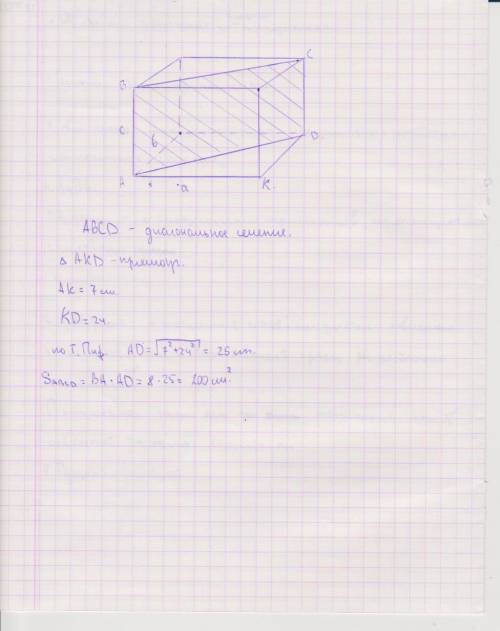 B
C
C
b
D
A
a
K
ABCD – диагональное сечение.
Δ AKD – прямоуг.
AK = 7 см.
KD = 24.
по Т. Пиф. AD = √7² + 24² = 25 см.
= BA · AD = 8 · 25 = 200 см²